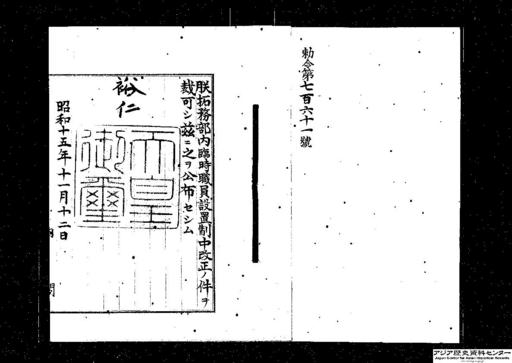 勅令第七百六十一號
朕拓務部內臨時職員設置制中改正ノ件ヲ
裁可シ茲ニ之ヲ公布セシム
裕仁
天皇御璽
昭和十五年十一月十二日
アジア歴史資料センター
Japan Center for Asian Historical Records